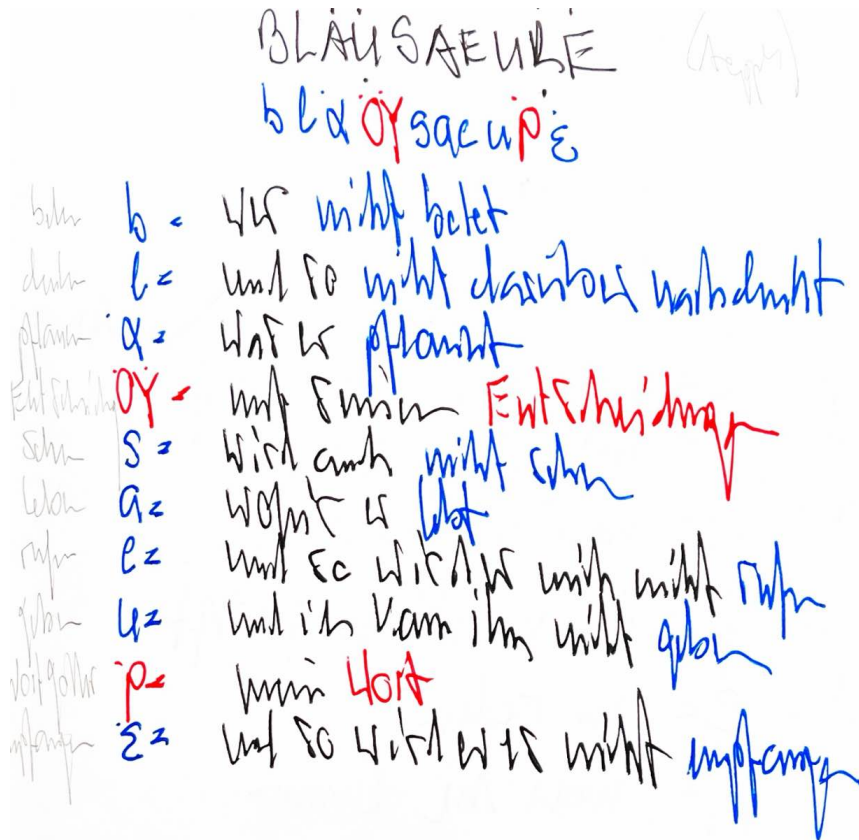 BLÄÜSAEURE
blαÖΫsaeuṗε
beten b = wer nicht betet
denken l = und so nicht darüber nachdenkt
pflanzen α = was er pflanzt
Entscheidung ÖΫ = mit seinen Entscheidungen
Sehen s = wird auch nicht sehn
leben a = wofür er lebt
rufen e = und so wird er mich nicht rufen
geben u = und ich kann ihm nicht geben
Wort Gottes ṗ = mein Wort
empfangen ε = und so wird er es nicht empfangen